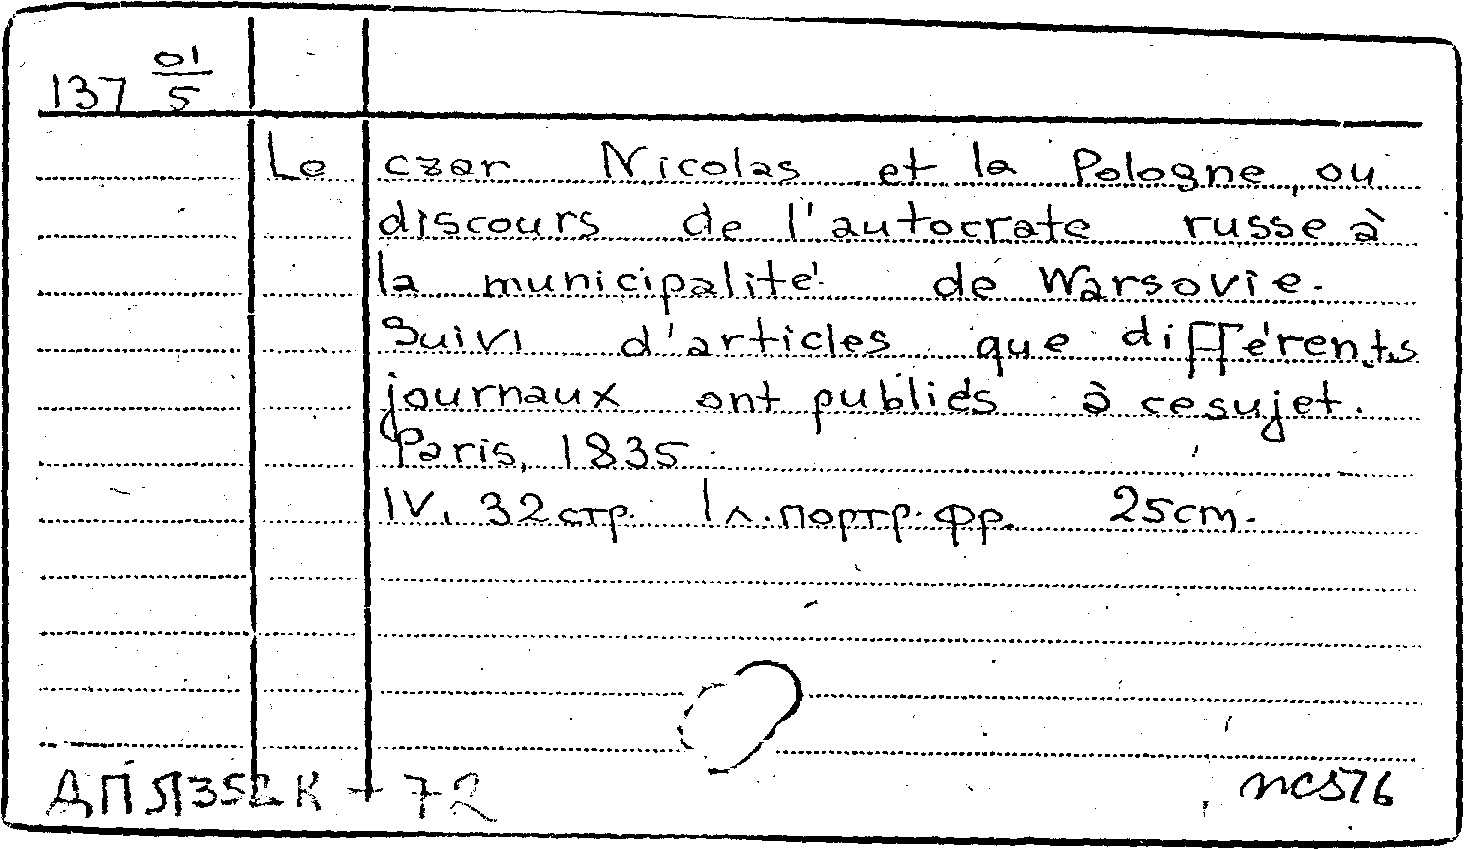 137 01/5
Le czar Nicolas et la Pologne, ou
discours de l'autocrate russe à
la municipalité de Warsovie.
Suivi d'articles que différents
journaux ont publiés à cesujet.
Paris, 1835.
IV, 32 стр. 1 л. портр. фр. 25cm.
ДП Л352К - 72